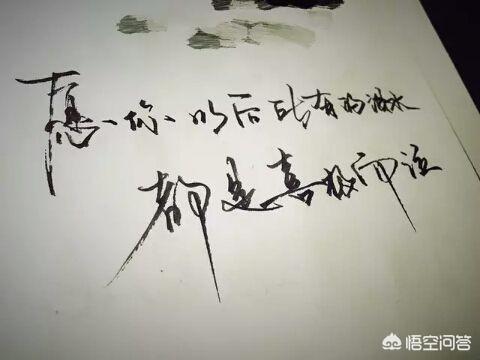 愿你以后所有的泪水
都是喜极而泣
悟空问答